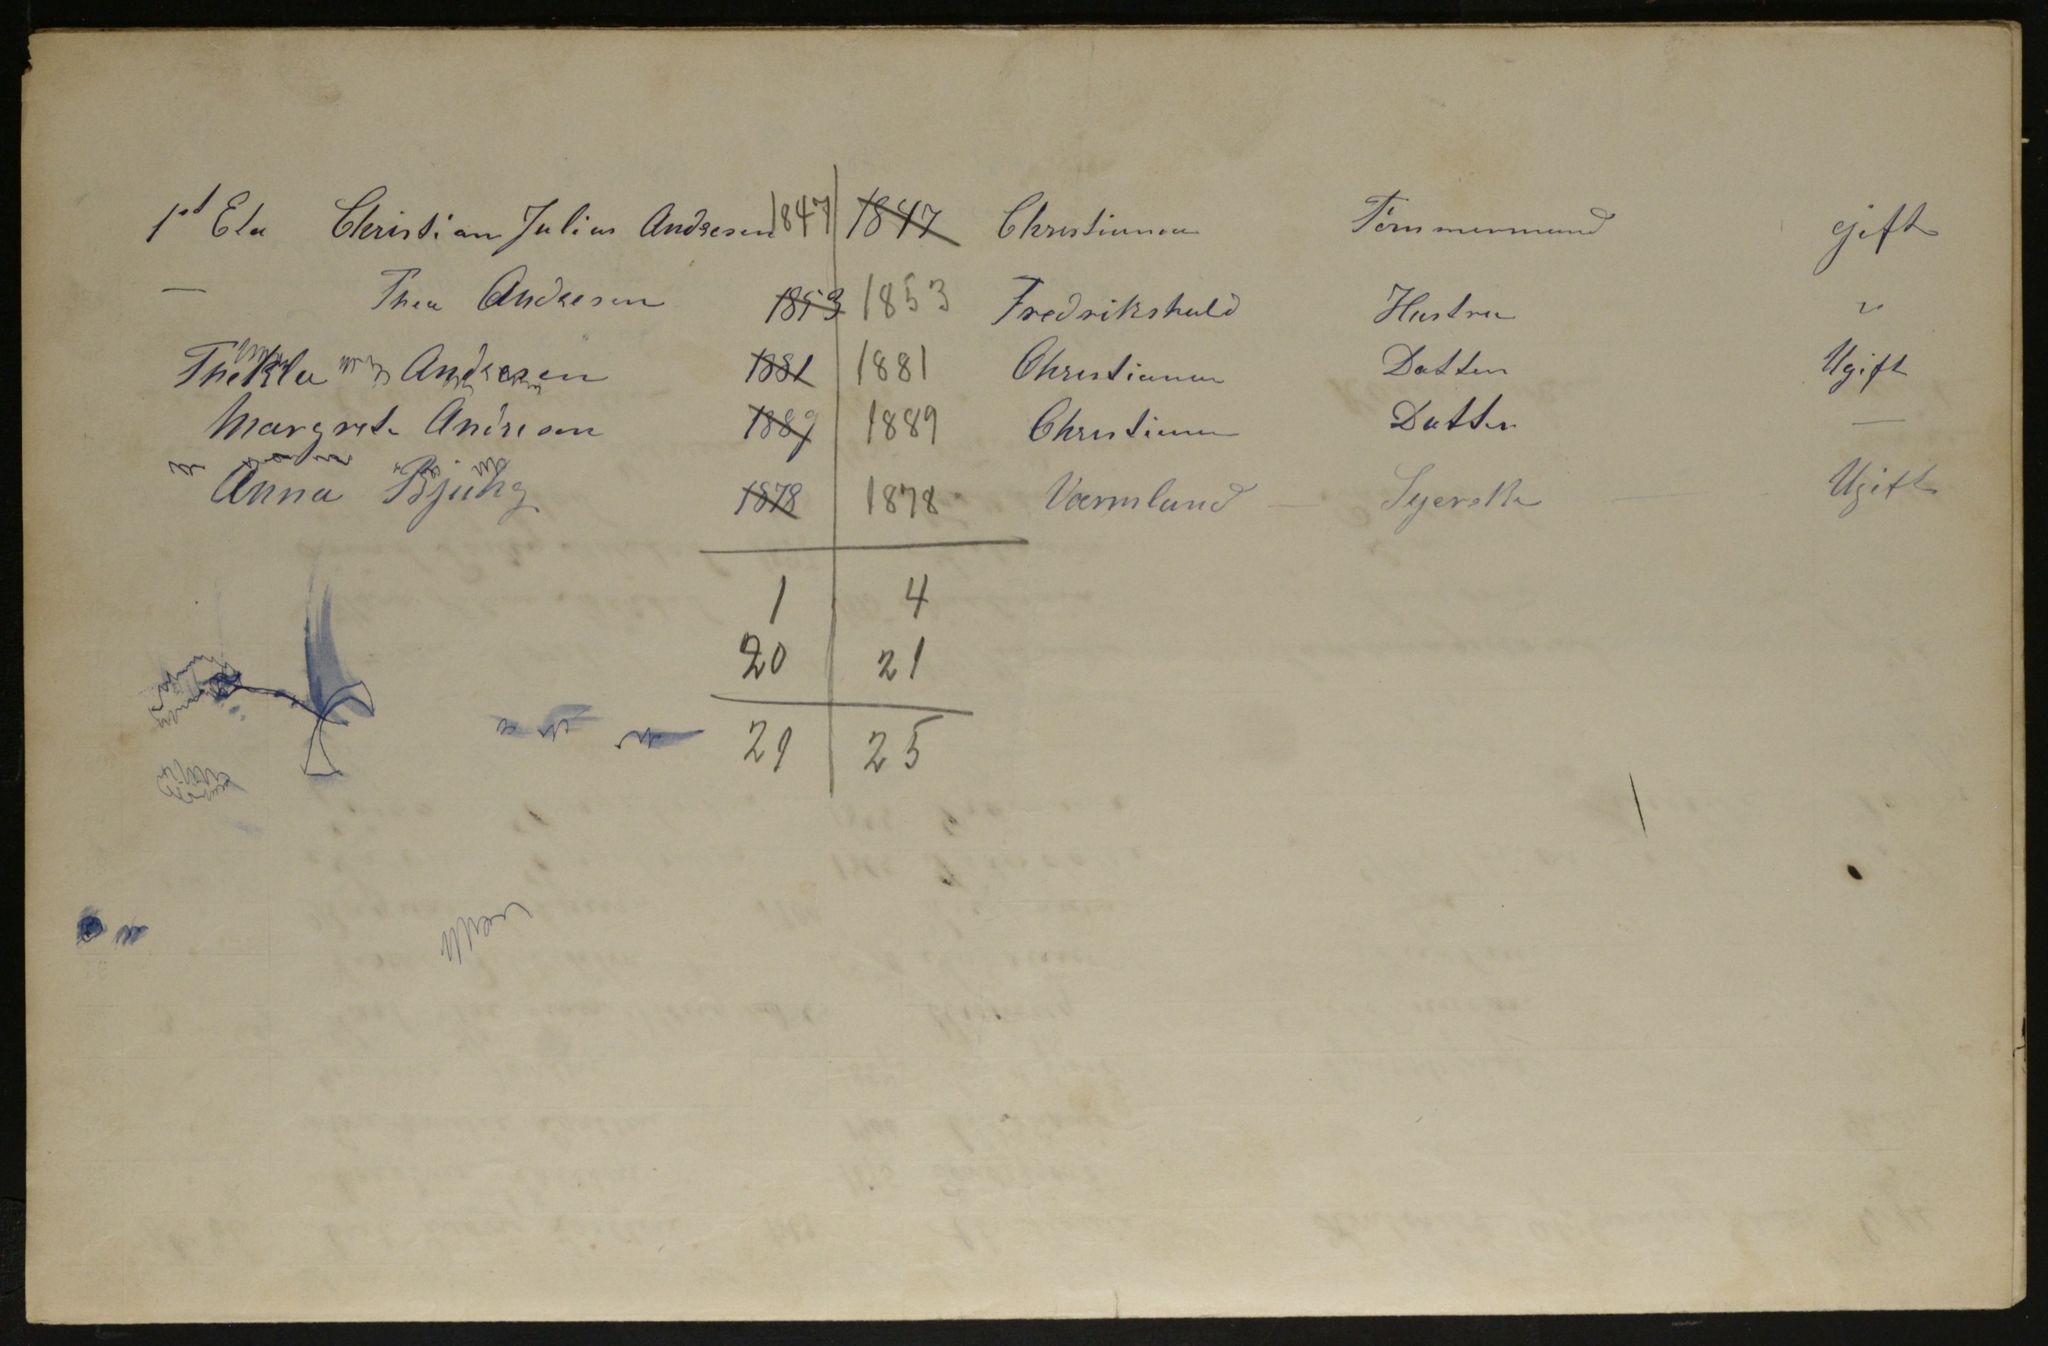 1st Eta Christian Julius Andresen 1847 1847 Christiania Tömmermand gift
— Thea Andresen 1853 1853 Fredrikshald Hustru "
Thekla Andresen 1881 1881 Christiania Datter Ugift
Margrete Andresen 1889 1889 Christiania Datter —
Anna Bjuhg 1878 1878 Værmland — Syerske — Ugift
1 4
20 21
21 25